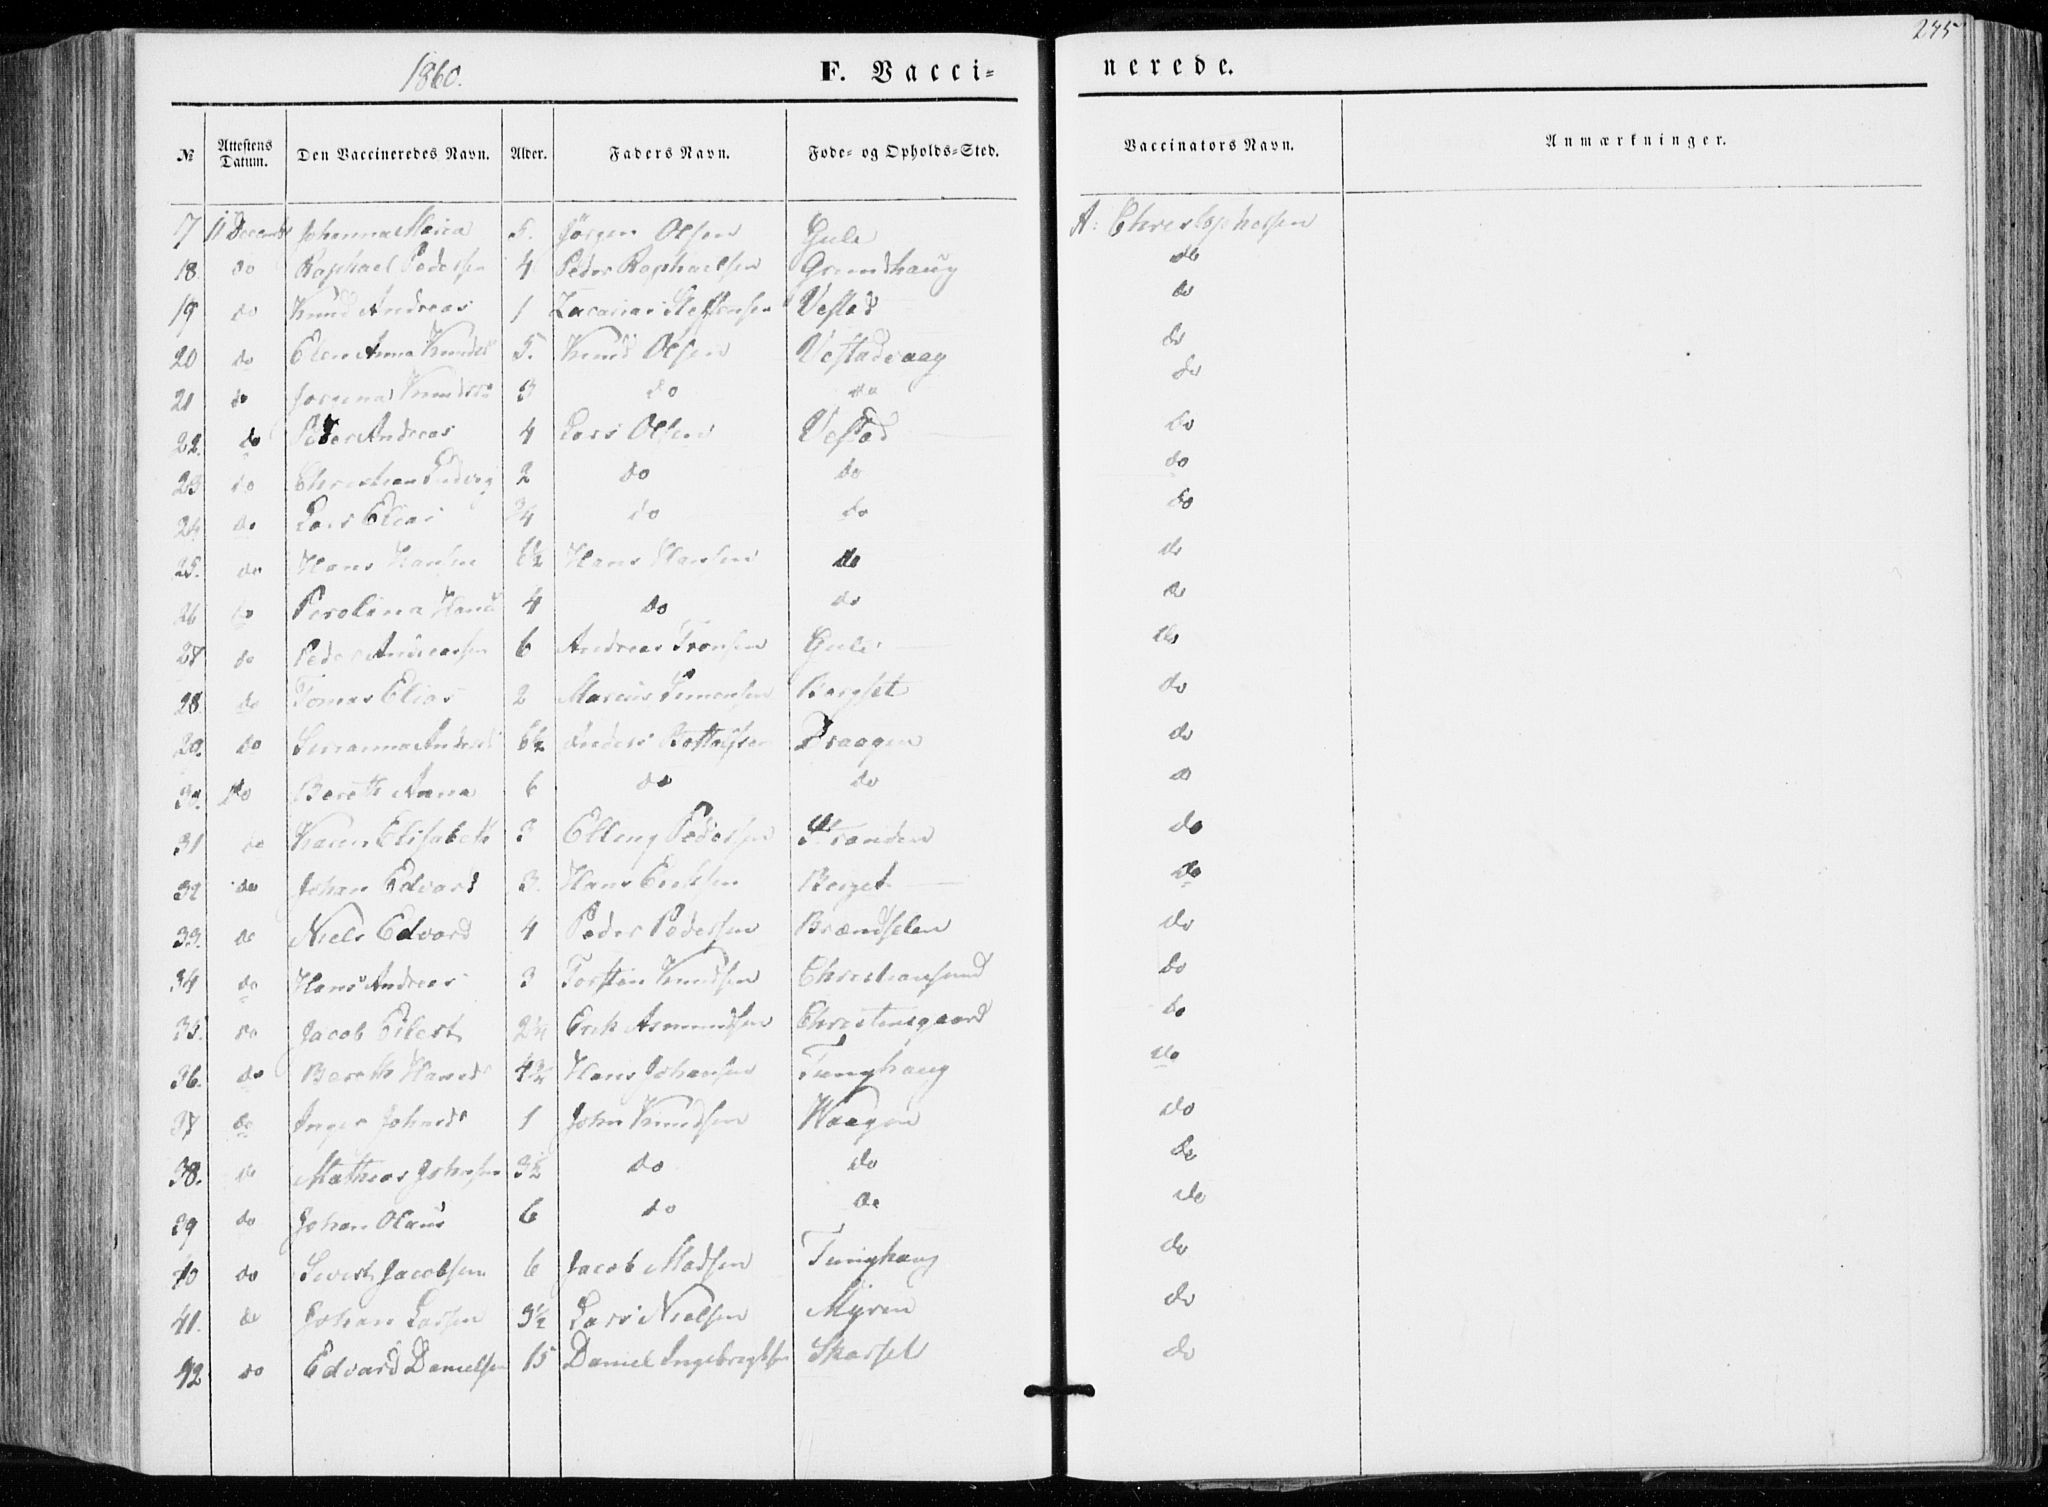 1860. F. Vacci- nerede. 245
№ Attestens Datum. Den Vaccineredes Navn. Alder. Faders Navn. Føde- og Opholds-Sted. Vaccinators Navn. Anmærkninger.
7 11 Decemb Johanna Maria 5. Jörgen Olsen Gule A: Christophersen
18. do Raphael Pedersen 4 Peder Raphaelsen Grundhaug do
19 do Knud Andreas 1 Zacarias Steffensen Vestad do
20 do Elen Anna Knuds 5. Knud Olsen Vestadvaag do
21 do Knuds 3 do do do
22. do Peder Andreas 4 Lars Olsen Vestad do
23 do Christian Ludvig 2 do do do
24 do Lars Elias 3/4 do do do
25. do Hans Hansen 6½ Hans Hansen do do
26 do Perolina Hans 4 do do do
27 do Peder Andreassen 6 Andreas Tronsen Gule do
28. do Tomas Elias 2 Marcus Simensen Bergset do
29. do Andreas 6½ Anders Draagen do
30. do Bereth Anna 6 do do do
31 do Karen Elisabeth 3 Elling Pedersen Stranden do
32 do Johan Edvard 3. Hans Eriksen Berget do
33. do Niels Edvard 4 Peder Pedersen do
34 do Hans Andreas 3 Torsten Knudsen Christiansund do
35. do Jacob Eilert 2¼ Erik Asmundsen Christensgaard do
36. do Bereth Hansd 4¾ Hans Johansen Tunghaug do
37 do Inger Johnsd 1 John Knudsen Waagen do
38. do Mathias Johnsen 3½ do do do
39 do Johan Olaus 6 do do do
40 do Sivert Jacobsen 6 Jacob Madsen Tunghaug do
41. do Johan Larsen 9½ Lars Nielsen Myren do
42 do Edvard Danielsen 15 Daniel Ingebrigtsen Skarset do